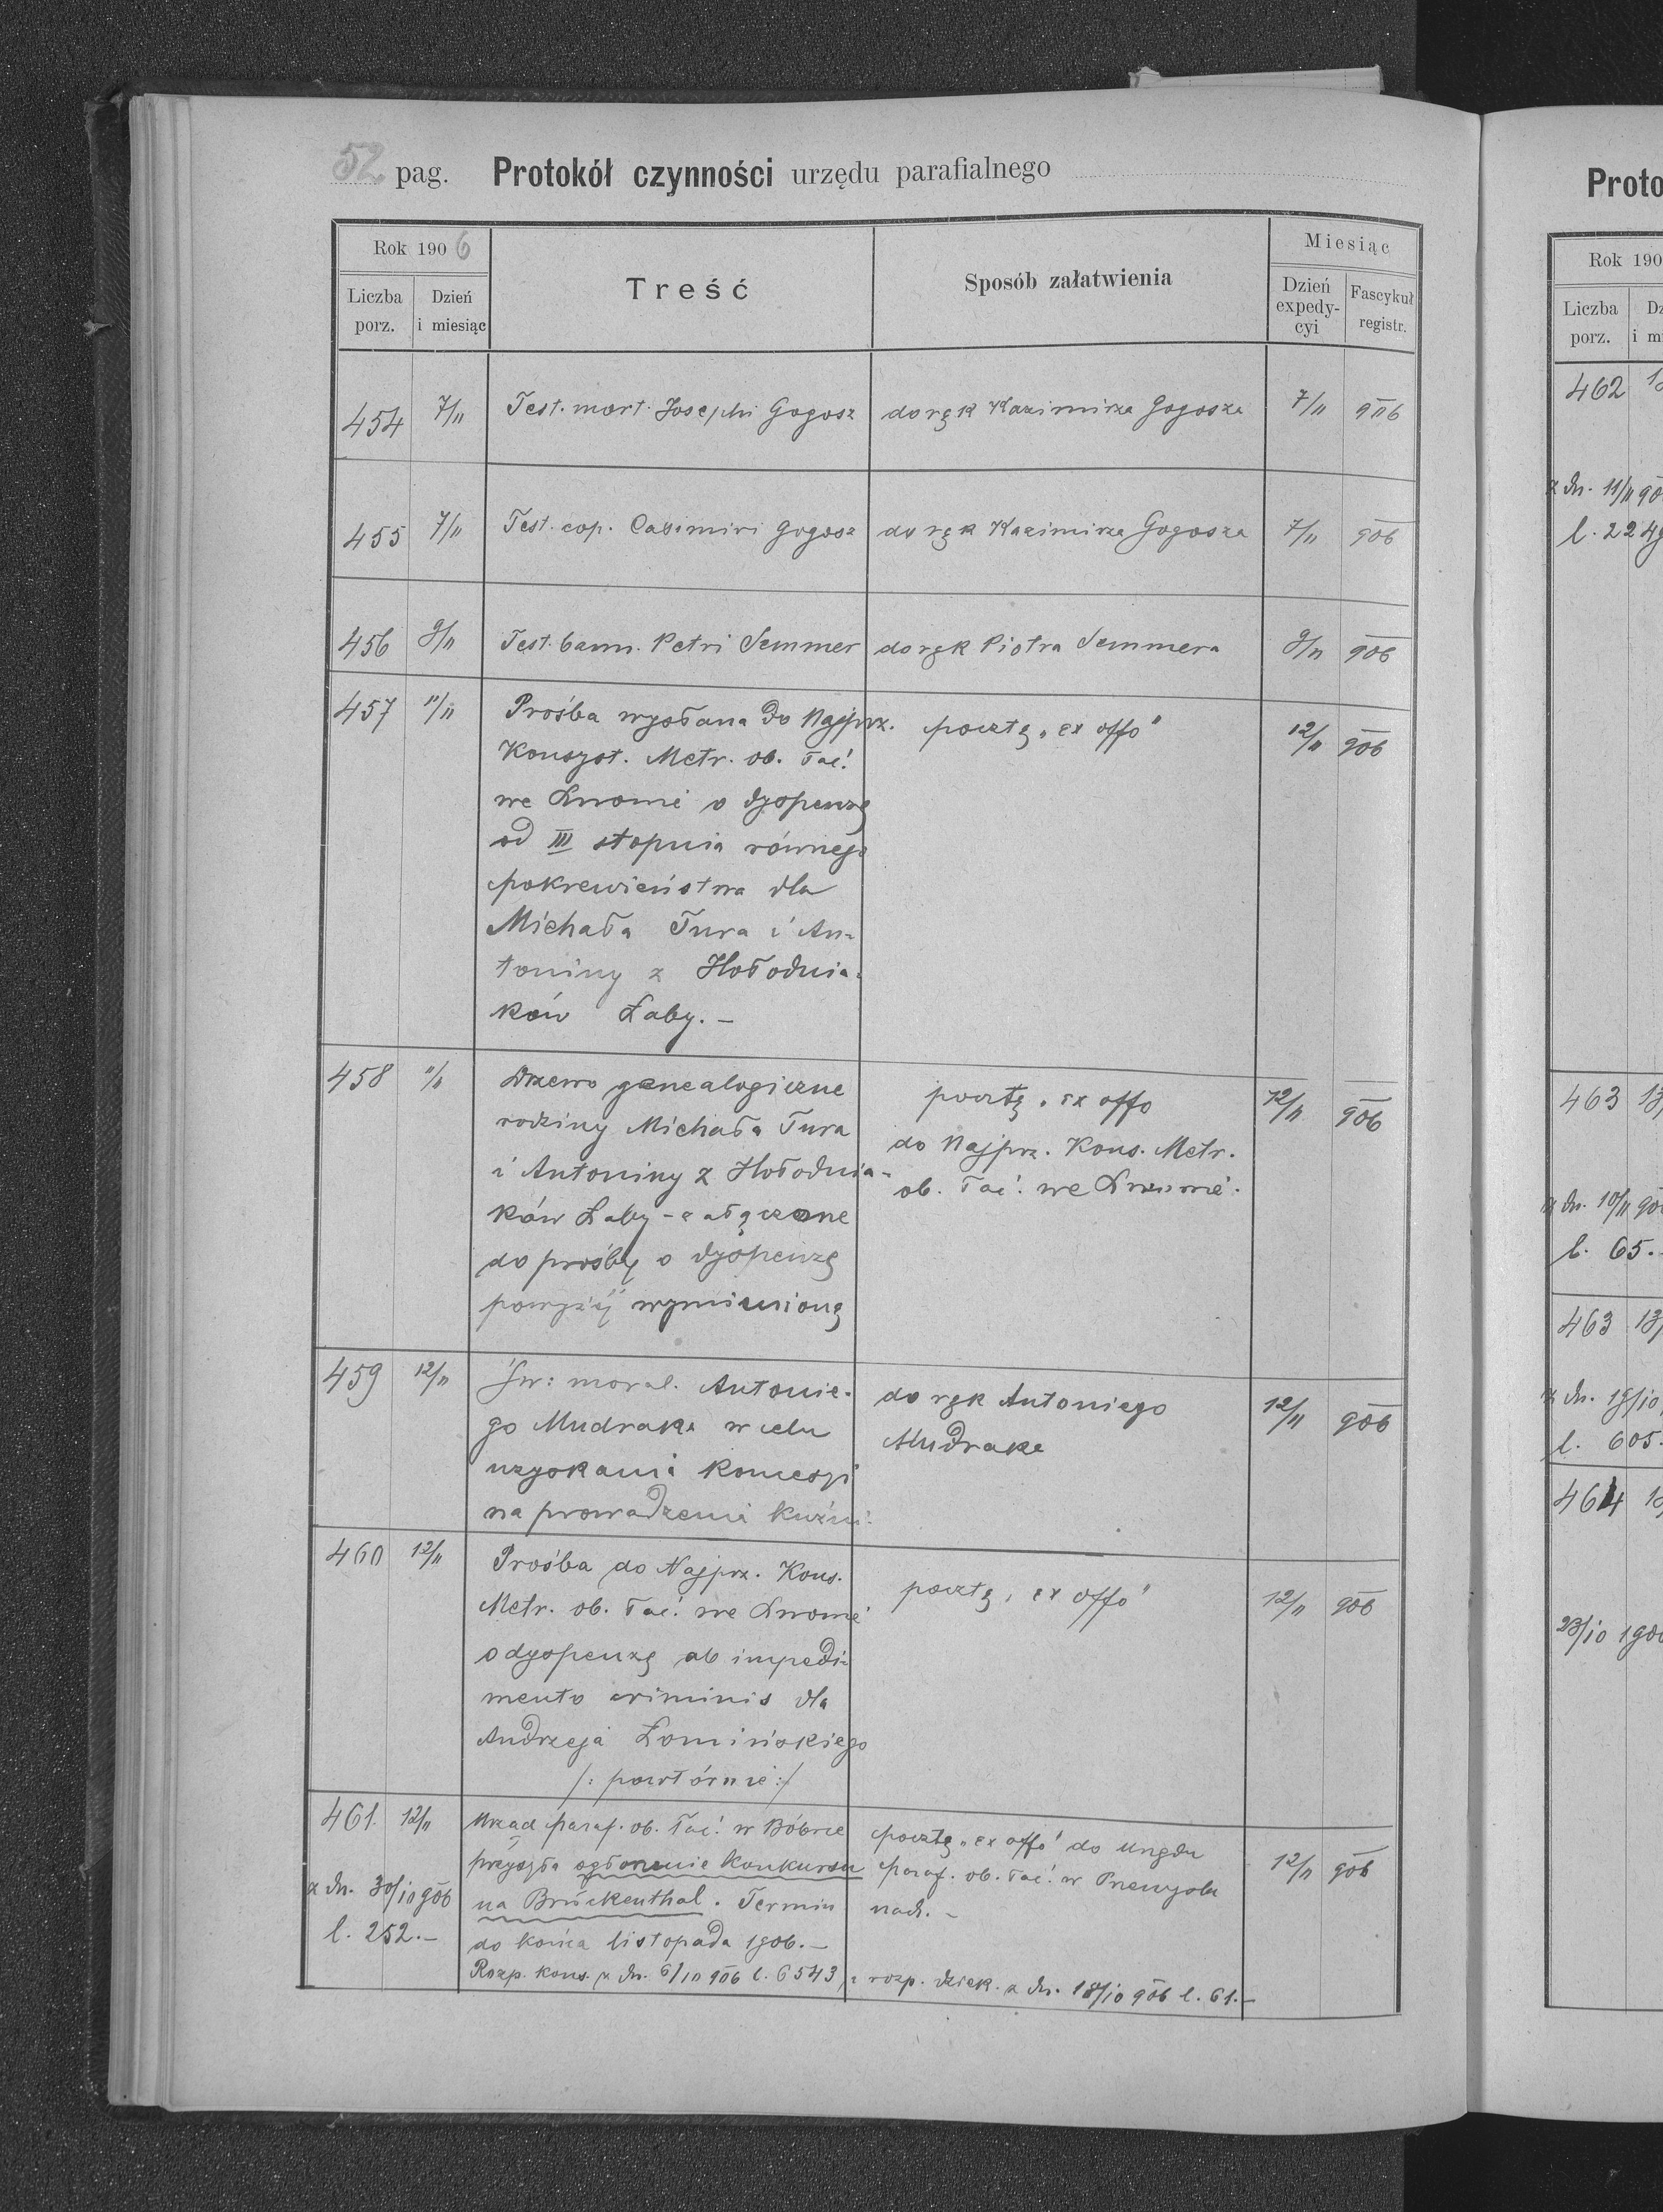 52 pag. Protokół czynności urzędu parafialnego
Rok 1906
Liczba porz.
Dzień i miesiąc
Treść
Sposób załatwienia
Miesiąc
Dzień expedycyi
Fascykuł registr.
454 7/11 Test. mort. Josephi Gogosz do rąk Kazimirza Gogosza 7/11 906
455 7/11 Test. cop. Casimiri Gogosz do rąk Kazimirza Gogosza 7/11 906
456 9/11 Test. bann. Petri Semmer do rąk Piotra Semmera 9/11 906
457 11/11 Prośba wysłana do Najprz. pocztą „ex offo" 12/11 906
Konsyst. Metr. ob. łać.
we Lwowie o dyspenzę
od III stopnia równego
pokrewieństwa dla
Michała Tura i An-
toniny z Hołodnia-
ków Łaby. –
458 11/11 Drzewo genealogiczne pocztą „ex offo 12/11 906
rodziny Michała Tura do Najprz. Kons. Metr.
i Antoniny z Hołodnia- ob. łać. we Lwowie.
ków Łaby – załączone
do prośby o dyspenzę
powyżéj wymienioną
459 12/11 Św: moral. Antonie- do rąk Antoniego 12/11 906
go Mudraka w celu Mudraka
uzyskania koncesyi
na prowadzenie kuźni.
460 12/11 Prośba do Najprz. Kons. pocztą „ex offo" 12/11 906
Metr. ob. łać. we Lwowie
o dyspenzę ab impedi-
mento criminis dla
Andrzeja Łomińskiego
/: powtórnie :/
461. 12/11 Urząd paraf. ob. łać. w Bóbrce pocztą „ex offo" do Urzędu 12/11 906
przysyła ogłoszenie konkursu paraf. ob. łać. w Przemyśla
z dn. 30/10 906 na Brückenthal. Termin nach. –
l. 252. – do końca listopada 1906. –
Rozp. kons. z dn. 6/10 906 l. 6543, rozp. dziek. z dn. 18/10 906 l. 61. –
Proto
Rok 190
Liczba porz.
462
z dn. 11/11 90
l. 2249
463 13/
z dn. 10/11 90
l. 65.
463 13/
z dn. 19/10
l. 605.
464
23/10 190